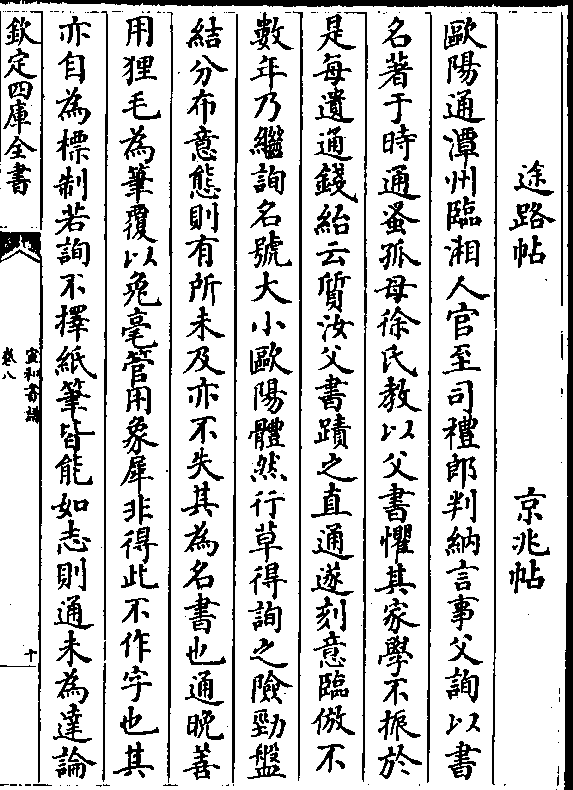 途路帖　京兆帖
歐陽通潭州臨湘人官至司禮郎判納言事父詢以書
名著于時通蚤孤母徐氏教以父書懼其家學不振於
是每遺通錢紿云質汝父書蹟之直通遂刻意臨倣不
數年乃繼詢名號大小歐陽體然行草得詢之險勁盤
結分布意態則有所未及亦不失其為名書也通晚善
用狸毛為筆覆以兔毫管用象犀非得此不作字也其
亦自為標制若詢不擇紙筆皆能如志則通未為達論
欽定四庫全書
宣和書譜
卷八
十